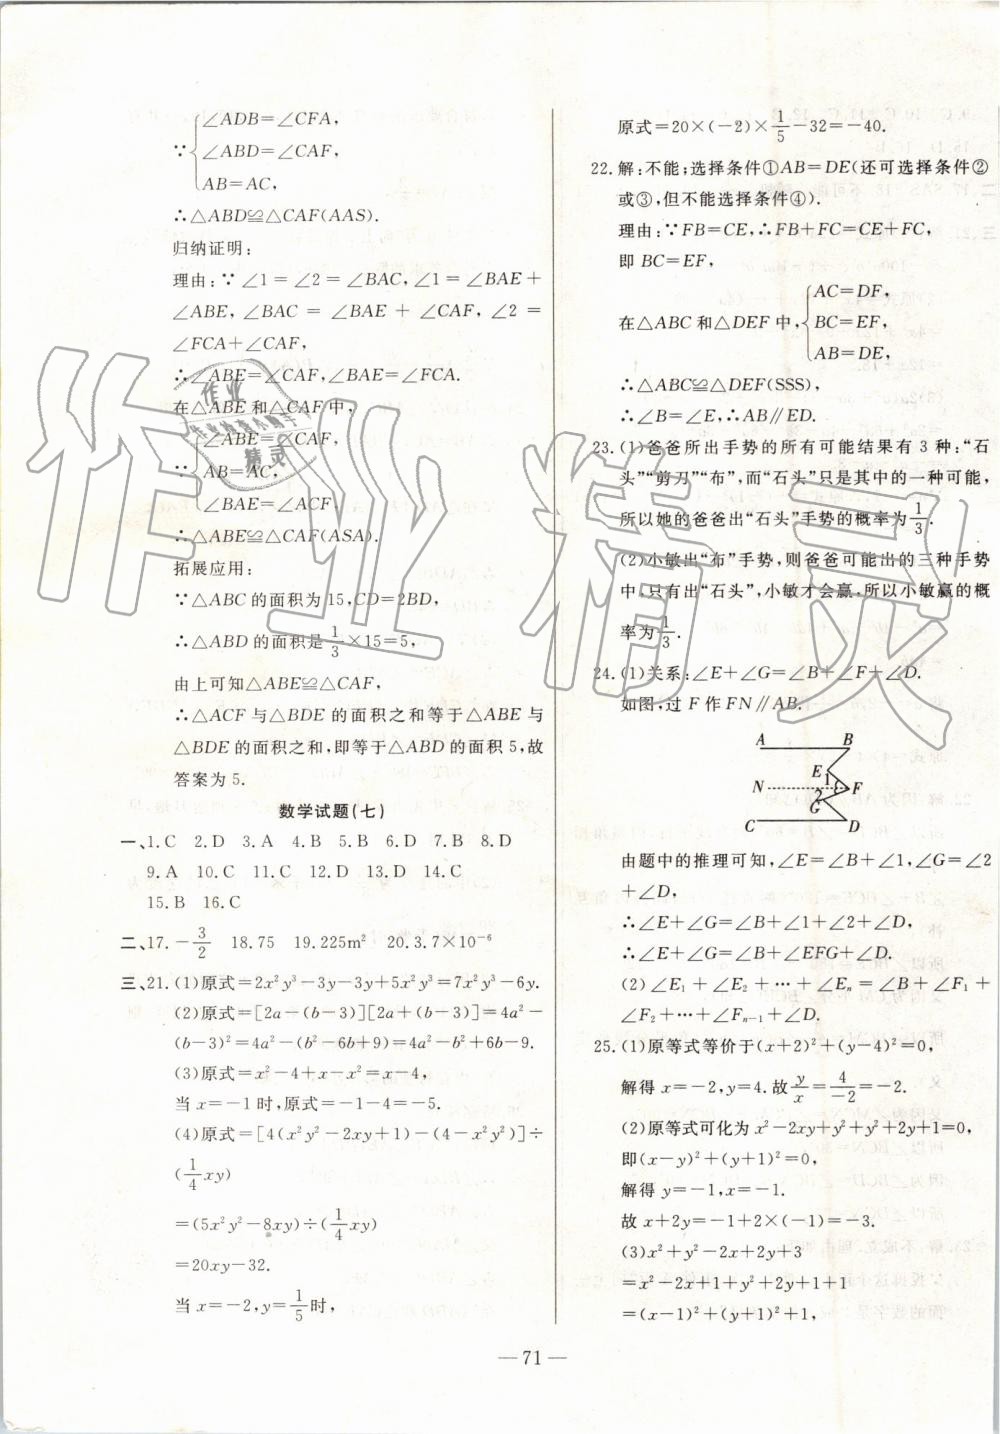 ∠ADB=∠CFA,
∵ ∠ABD=∠CAF,
AB=AC,
∴△ABD≌△CAF(AAS).
归纳证明:
理由:∵∠1=∠2=∠BAC,∠1=∠BAE+
∠ABE,∠BAC=∠BAE+∠CAF,∠2=
∠FCA+∠CAF,
∴∠ABE=∠CAF,∠BAE=∠FCA.
在△ABE和△CAF中,
∠ABE=∠CAF,
∵ AB=AC,
∠BAE=∠ACF,
∴△ABE≌△CAF(ASA).
拓展应用:
∵△ABC的面积为15,CD=2BD,
∴△ABD的面积是1/3×15=5,
由上可知△ABE≌△CAF,
∴△ACF与△BDE的面积之和等于△ABE与
△BDE的面积之和,即等于△ABD的面积5,故
答案为5.
数学试题(七)
一、1.C 2.D 3.A 4.B 5.B 6.C 7.B 8.D
9.A 10.C 11.C 12.D 13.D 14.C
15.B 16.C
二、17.-3/2 18.75 19.225m² 20.3.7×10⁻⁶
三、21.(1)原式=2x²y³-3y-3y+5x²y³=7x²y³-6y.
(2)原式=[2a-(b-3)][2a+(b-3)]=4a²-
(b-3)²=4a²-(b²-6b+9)=4a²-b²+6b-9.
(3)原式=x²-4+x-x²=x-4,
当x=-1时,原式=-1-4=-5.
(4)原式=[4(x²y²-2xy+1)-(4-x²y²)]÷
(1/4xy)
=(5x²y²-8xy)÷(1/4xy)
=20xy-32.
当x=-2,y=1/5时,
原式=20×(-2)×1/5-32=-40.
22.解:不能;选择条件①AB=DE(还可选择条件②
或③,但不能选择条件④).
理由:∵FB=CE,∴FB+FC=CE+FC,
即BC=EF,
AC=DF,
在△ABC和△DEF中, BC=EF,
AB=DE,
∴△ABC≌△DEF(SSS),
∴∠B=∠E,∴AB∥ED.
23.(1)爸爸所出手势的所有可能结果有3种:“石
头”“剪刀”“布”,而“石头”只是其中的一种可能,
所以她的爸爸出“石头”手势的概率为1/3.
(2)小敏出“布”手势,则爸爸可能出的三种手势
中,只有出“石头”,小敏才会赢,所以小敏赢的概
率为1/3.
24.(1)关系:∠E+∠G=∠B+∠F+∠D.
如图,过F作FN∥AB.
A B
E
N 1 F
2
G
C D
由题中的推理可知,∠E=∠B+∠1,∠G=∠2
+∠D,
∴∠E+∠G=∠B+∠1+∠2+∠D,
∴∠E+∠G=∠B+∠EFG+∠D.
(2)∠E₁+∠E₂+…+∠Eₙ=∠B+∠F₁+
∠F₂+…+∠Fₙ₋₁+∠D.
25.(1)原等式等价于(x+2)²+(y-4)²=0,
解得x=-2,y=4.故y/x=4/-2=-2.
(2)原等式可化为x²-2xy+y²+y²+2y+1=0,
即(x-y)²+(y+1)²=0,
解得y=-1,x=-1.
故x+2y=-1+2×(-1)=-3.
(3)x²+y²-2x+2y+3
=x²-2x+1+y²+2y+1+1
=(x-1)²+(y+1)²+1,
— 71 —
作业精灵
作业
精灵